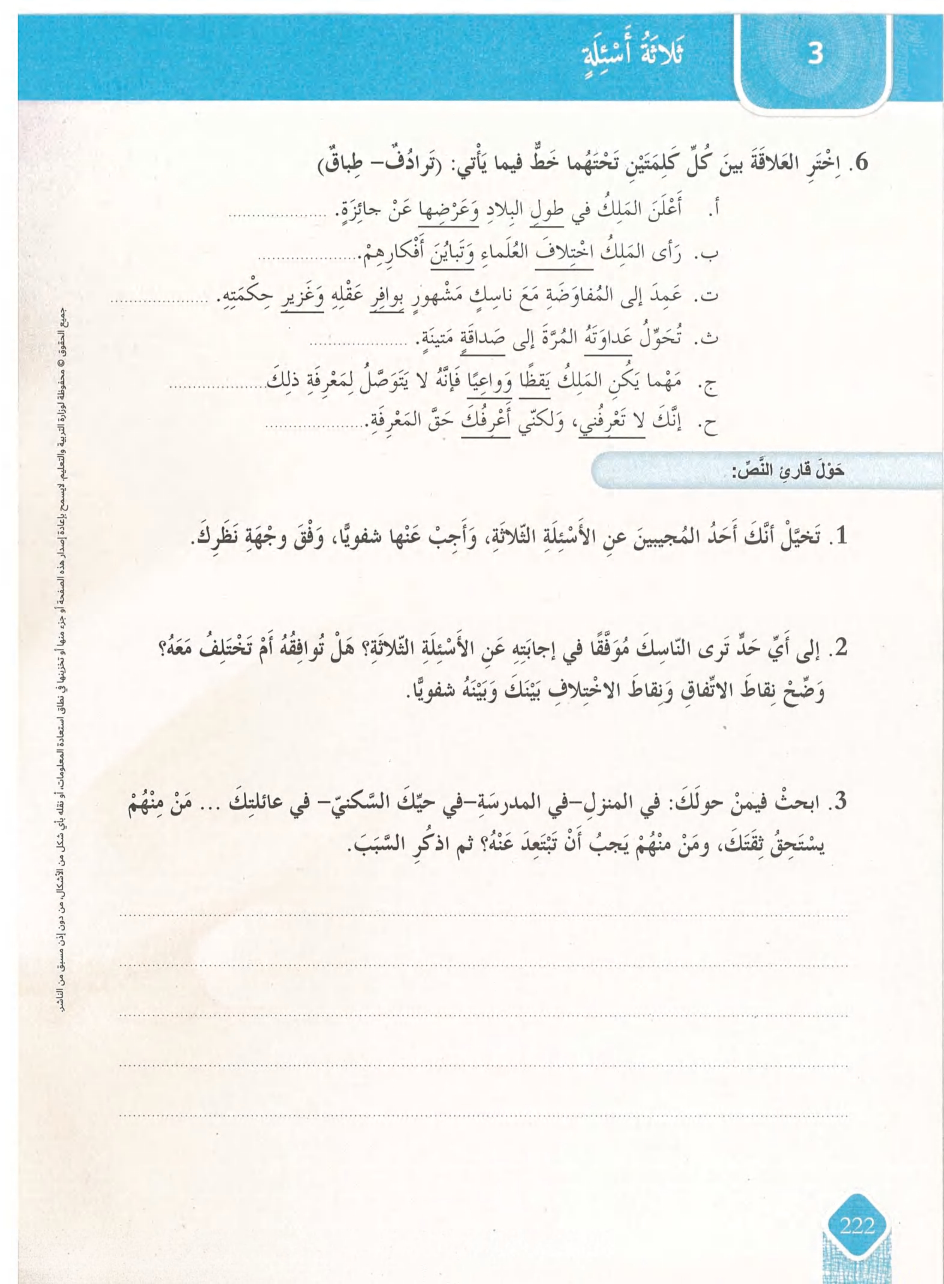 3
ثَلاثَةُ أَسْئِلَةٍ
6. اِخْتَرِ العَلاقَةَ بينَ كُلِّ كَلِمَتَيْنِ تَحْتَهُما خَطٌّ فيما يَأْتي: (تَرادُفٌ– طِباقٌ)
أ. أَعْلَنَ المَلِكُ في طولِ البِلادِ وَعَرْضِها عَنْ جائِزَةٍ. ....................
ب. رَأى المَلِكُ اخْتِلافَ العُلَماءِ وَتَبايُنَ أَفْكارِهِمْ.....................
ت. عَمِدَ إلى المُفاوَضَةِ مَعَ ناسِكٍ مَشْهورٍ بِوافِرِ عَقْلِهِ وَغَزيرِ حِكْمَتِهِ. ....................
ث. تُحَوِّلُ عَداوَتَهُ المُرَّةَ إلى صَداقَةٍ مَتينَةٍ. ....................
ج. مَهْما يَكُنِ المَلِكُ يَقظًا وَواعِيًا فَإنَّهُ لا يَتَوَصَّلُ لِمَعْرِفَةِ ذلِكَ....................
ح. إنَّكَ لا تَعْرِفُني، وَلكنّي أَعْرِفُكَ حَقَّ المَعْرِفَةِ.....................
حَوْلَ قارِئِ النَّصِّ:
1. تَخيَّلْ أنَّكَ أَحَدُ المُجيبينَ عنِ الأَسْئِلَةِ الثّلاثَةِ، وَأَجِبْ عَنْها شفويًّا، وَفْقَ وجْهَةِ نَظَرِكَ.
2. إلى أَيِّ حَدٍّ تَرى النّاسِكَ مُوَفَّقًا في إجابَتِهِ عَنِ الأَسْئِلَةِ الثّلاثَةِ؟ هَلْ تُوافِقُهُ أَمْ تَخْتَلِفُ مَعَهُ؟
وَضِّحْ نِقاطَ الاتِّفاقِ وَنِقاطَ الاخْتِلافِ بَيْنَكَ وَبَيْنَهُ شفويًّا.
3. ابحثْ فيمنْ حولَكَ: في المنزلِ–في المدرسَةِ–في حيِّكَ السَّكنيّ– في عائلتِكَ ... مَنْ مِنْهُمْ
يسْتَحِقُ ثِقَتَكَ، ومَنْ منْهُمْ يَجبُ أَنْ تَبْتَعِدَ عَنْهُ؟ ثم اذكُرِ السَّبَبَ.
جميع الحقوق © محفوظة لوزارة التربية والتعليم. لايسمح بإعادة إصدار هذه الصفحة أو جزء منها أو تخزينها في نطاق استعادة المعلومات، أو نقله بأي شكل من الأشكال، من دون إذن مسبق من الناشر.
222